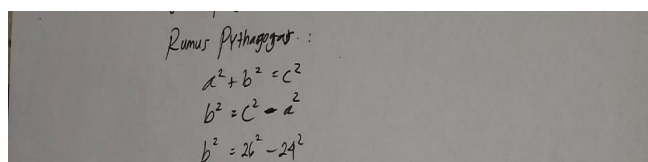 Rumus Pythagoras :
a² + b² = c²
b² = c² - a²
b² = 26² - 24²